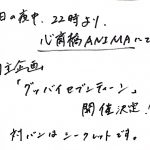 日の夜中、22時より、
心斎橋ANIMAにて
主企画
「グッバイセブンティーン」
開催決定!
対バンはシークレットです。